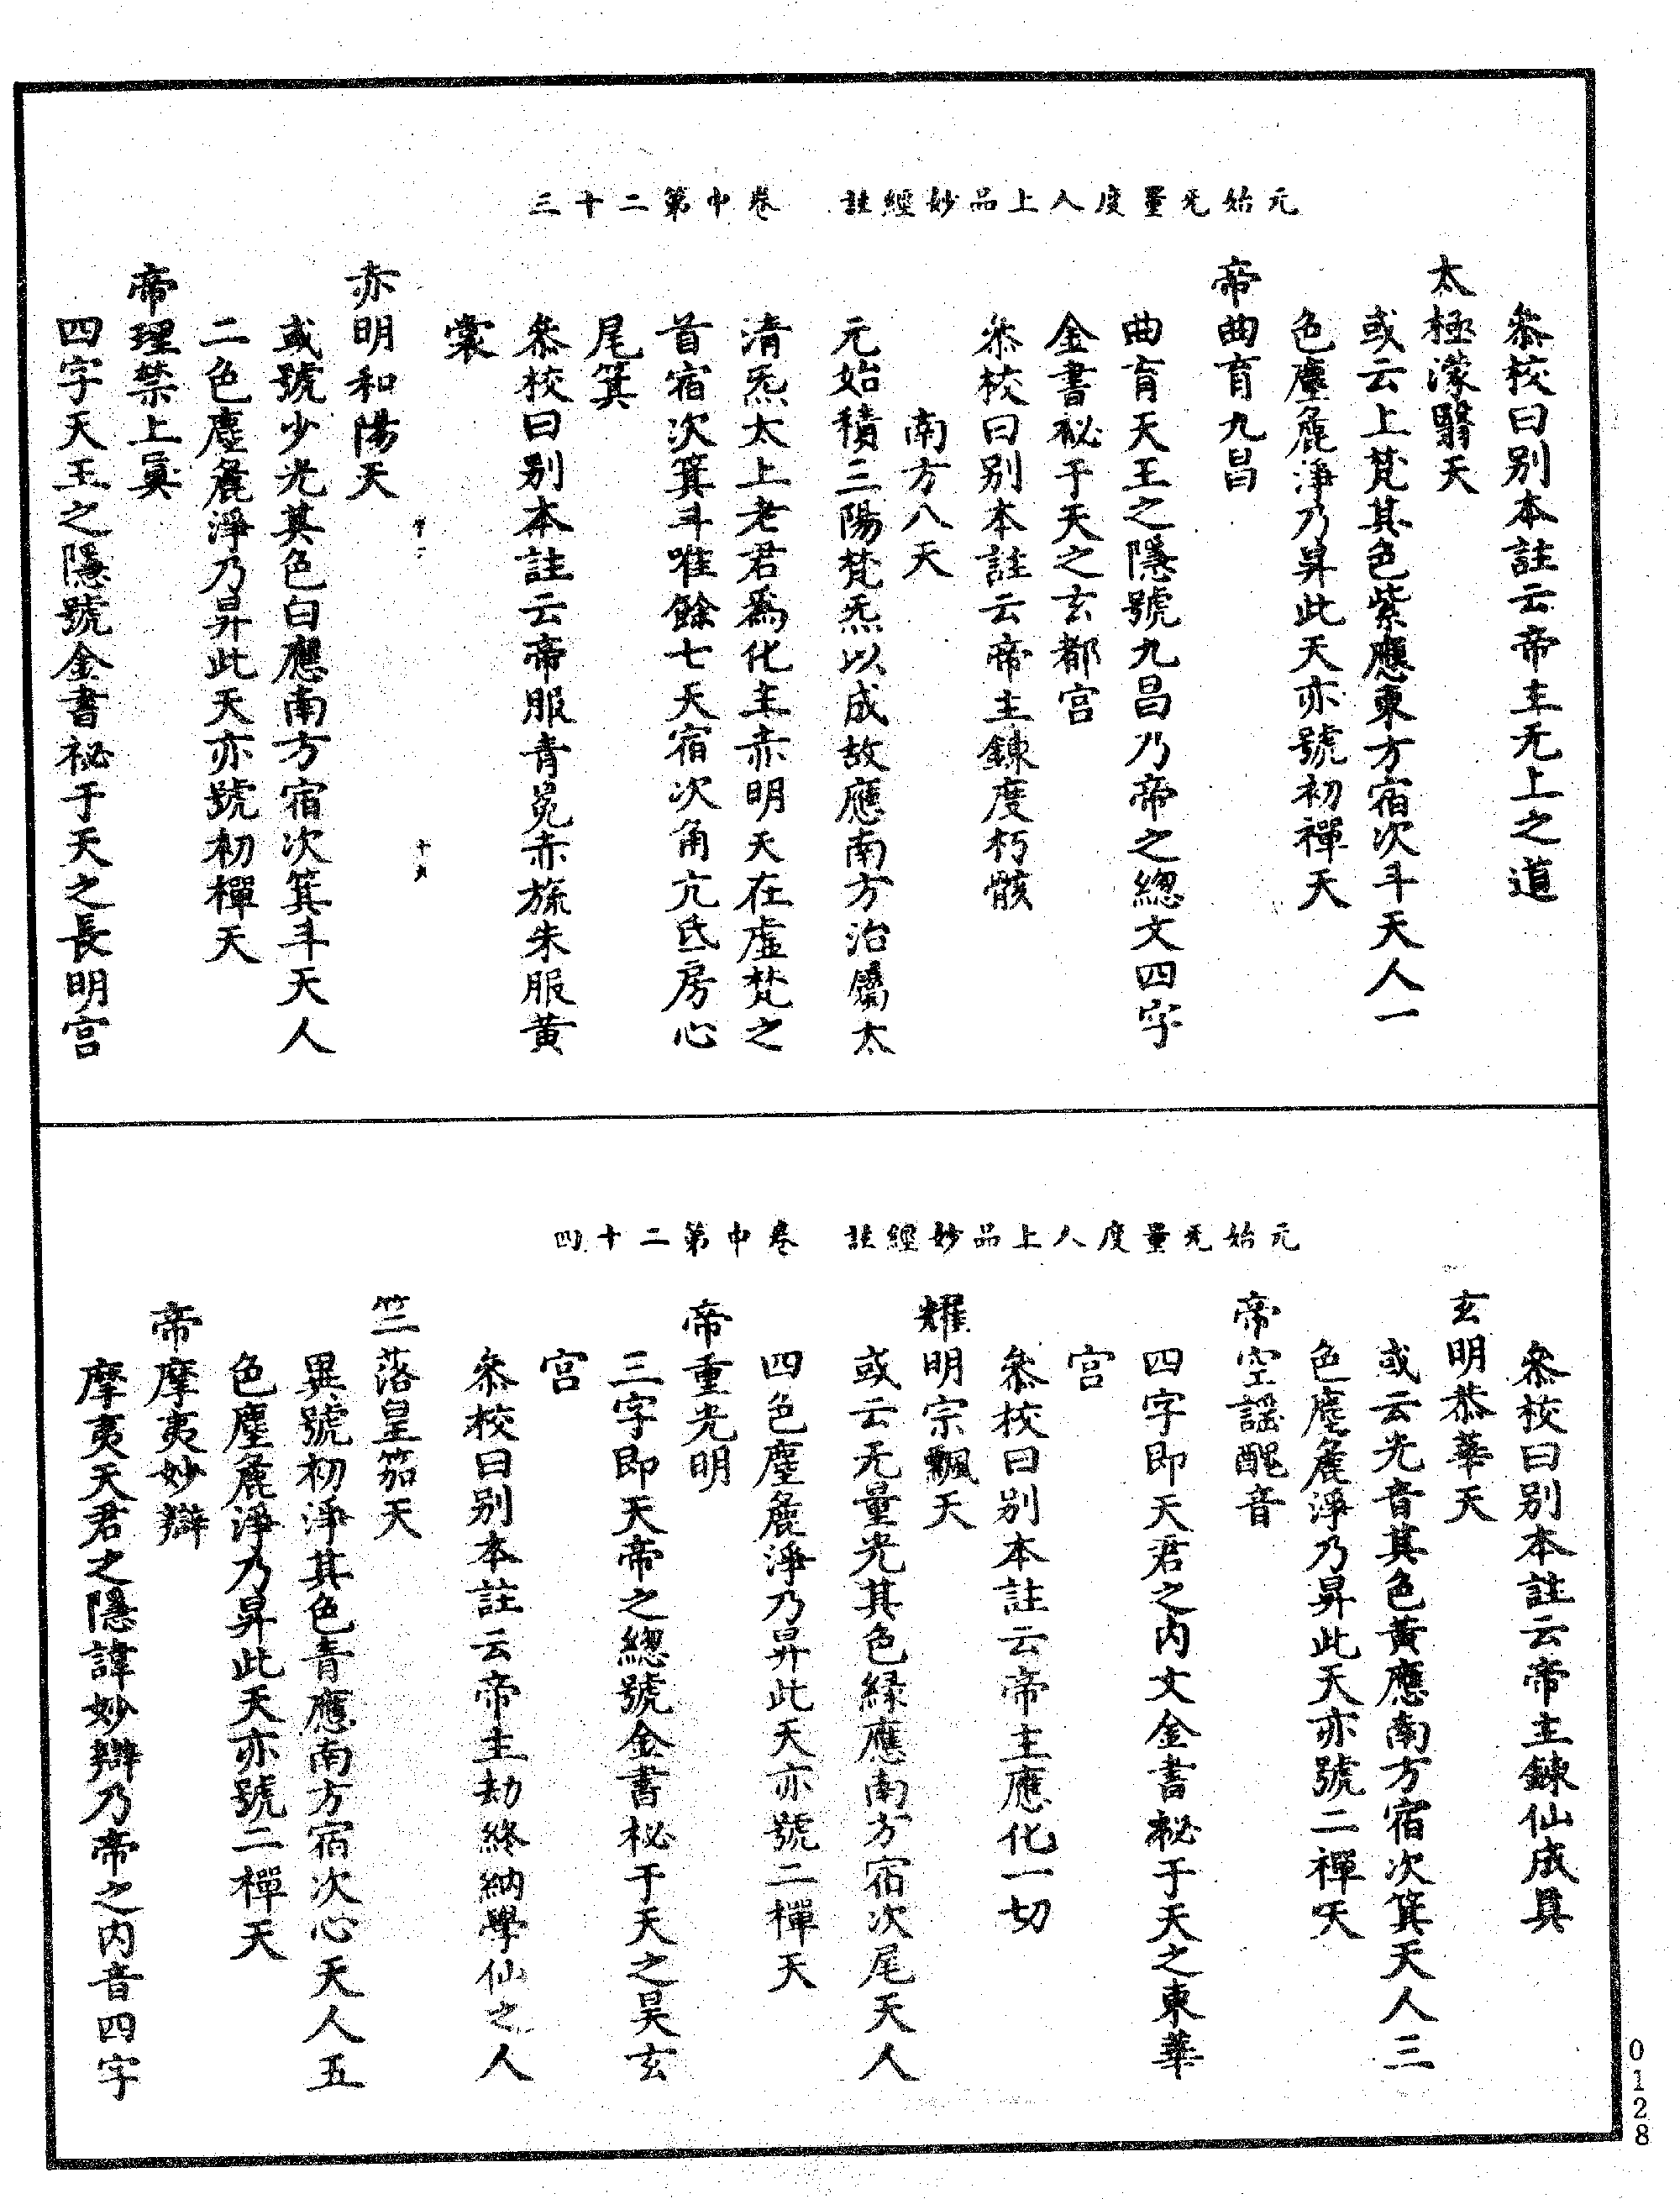 元始无量度人上品妙經註　卷中第二十三
叅校曰别本註云帝主无上之道
太極濛翳天
或云上梵其色紫應東方宿次斗天人一
色塵麄淨乃昇此天亦號初禪天
帝曲育九昌
曲育天王之隱號九昌乃帝之緫文四字
金書祕于天之玄都宫
叅校曰别本註云帝主鍊度朽骸
南方八天
元始積三陽梵炁以成故應南方治屬太
清炁太上老君爲化主赤明天在虚梵之
首宿次箕斗唯餘七天宿次角亢氐房心
尾箕
叅校曰别本註云帝服青冕赤旒朱服黄
裳
赤明和陽天
或號少光其色白應南方宿次箕斗天人
二色塵麄淨乃昇此天亦號初禪天
帝理禁上眞
四字天王之隱號金書祕于天之長明宫
元始无量度人上品妙經註　卷中第二十四
叅校曰别本註云帝主鍊仙成眞
玄明恭華天
或云光音其色黄應南方宿次箕天人三
色塵麄淨乃昇此天亦號二禪天
帝空謡醜音
四字即天君之内文金書祕于天之東華
宫
叅校曰别本註云帝主應化一切
耀明宗飄天
或云无量光其色緑應南方宿次尾天人
四色塵麄淨乃昇此天亦號二禪天
帝重光明
三字即天帝之緫號金書祕于天之昊玄
宫
叅校曰别本註云帝主劫終納學仙之人
竺落皇笳天
異號初淨其色青應南方宿次心天人五
色塵麄淨乃昇此天亦號二禪天
帝摩夷妙辯
摩夷天君之隱諱妙辯乃帝之内音四字
0128